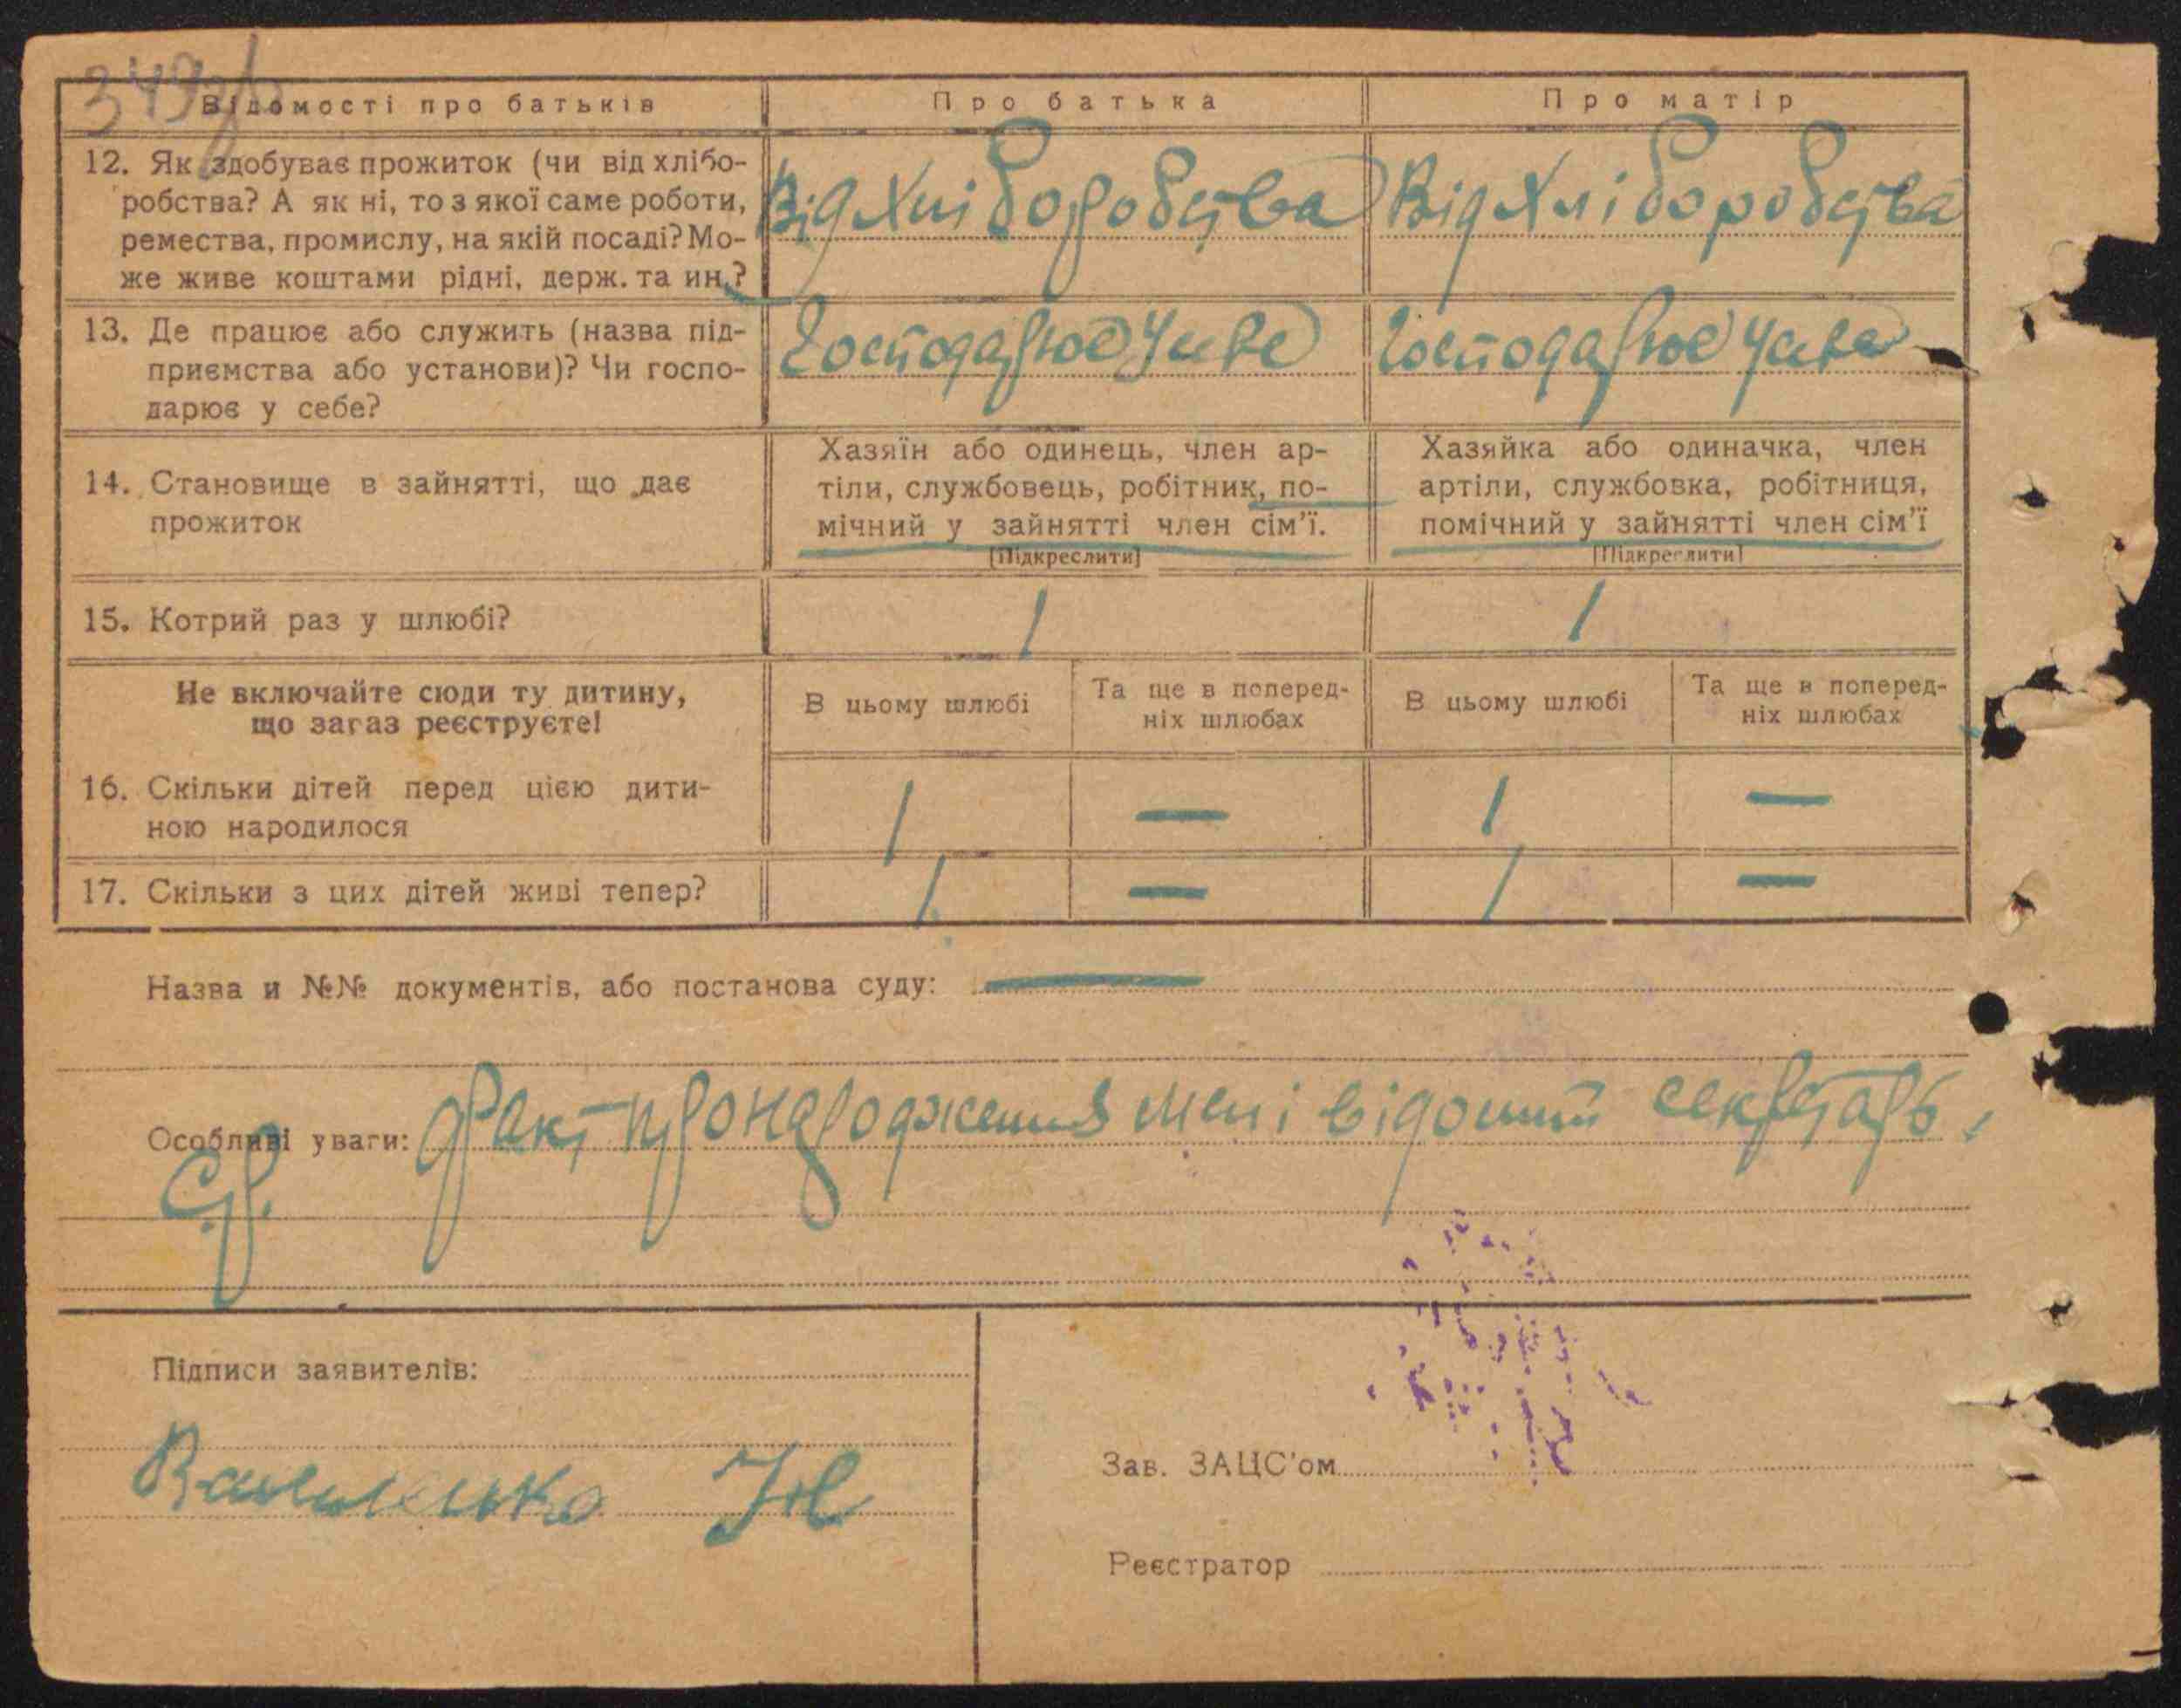 349зв
Відомості про батьків
Про батька
Про матір
12. Як здобуває прожиток (чи від хлібо-
робства? А як ні, то з якої саме роботи,
ремества, промислу, на якій посаді? Мо-
же живе коштами рідні, держ. та ин.?
Від Хліборобства
Від Хліборобства
13. Де працює або служить (назва під-
приємства або установи)? Чи госпо-
дарює у себе?
Господарює у себе
Господарює у себе
14. Становище в зайнятті, що дає
прожиток
Хазяїн або одинець, член ар-
тіли, службовець, робітник, по-
мічний у зайнятті член сім'ї.
[Підкреслити]
Хазяйка або одиначка, член
артіли, службовка, робітниця,
помічний у зайнятті член сім'ї
[Підкреслити]
15. Котрий раз у шлюбі?
1
1
Не включайте сюди ту дитину,
що зараз реєструєте!
В цьому шлюбі
Та ще в поперед-
ніх шлюбах
В цьому шлюбі
Та ще в поперед-
ніх шлюбах
16. Скільки дітей перед цією дити-
ною народилося
1
—
1
—
17. Скільки з цих дітей живі тепер?
1
—
1
—
Назва и №№ документів, або постанова суду: —
Особливі уваги: Факт про народження мені відомий секретарь
с/р.
Підписи заявителів:
Василенко
Зав. ЗАЦС'ом
Реєстратор